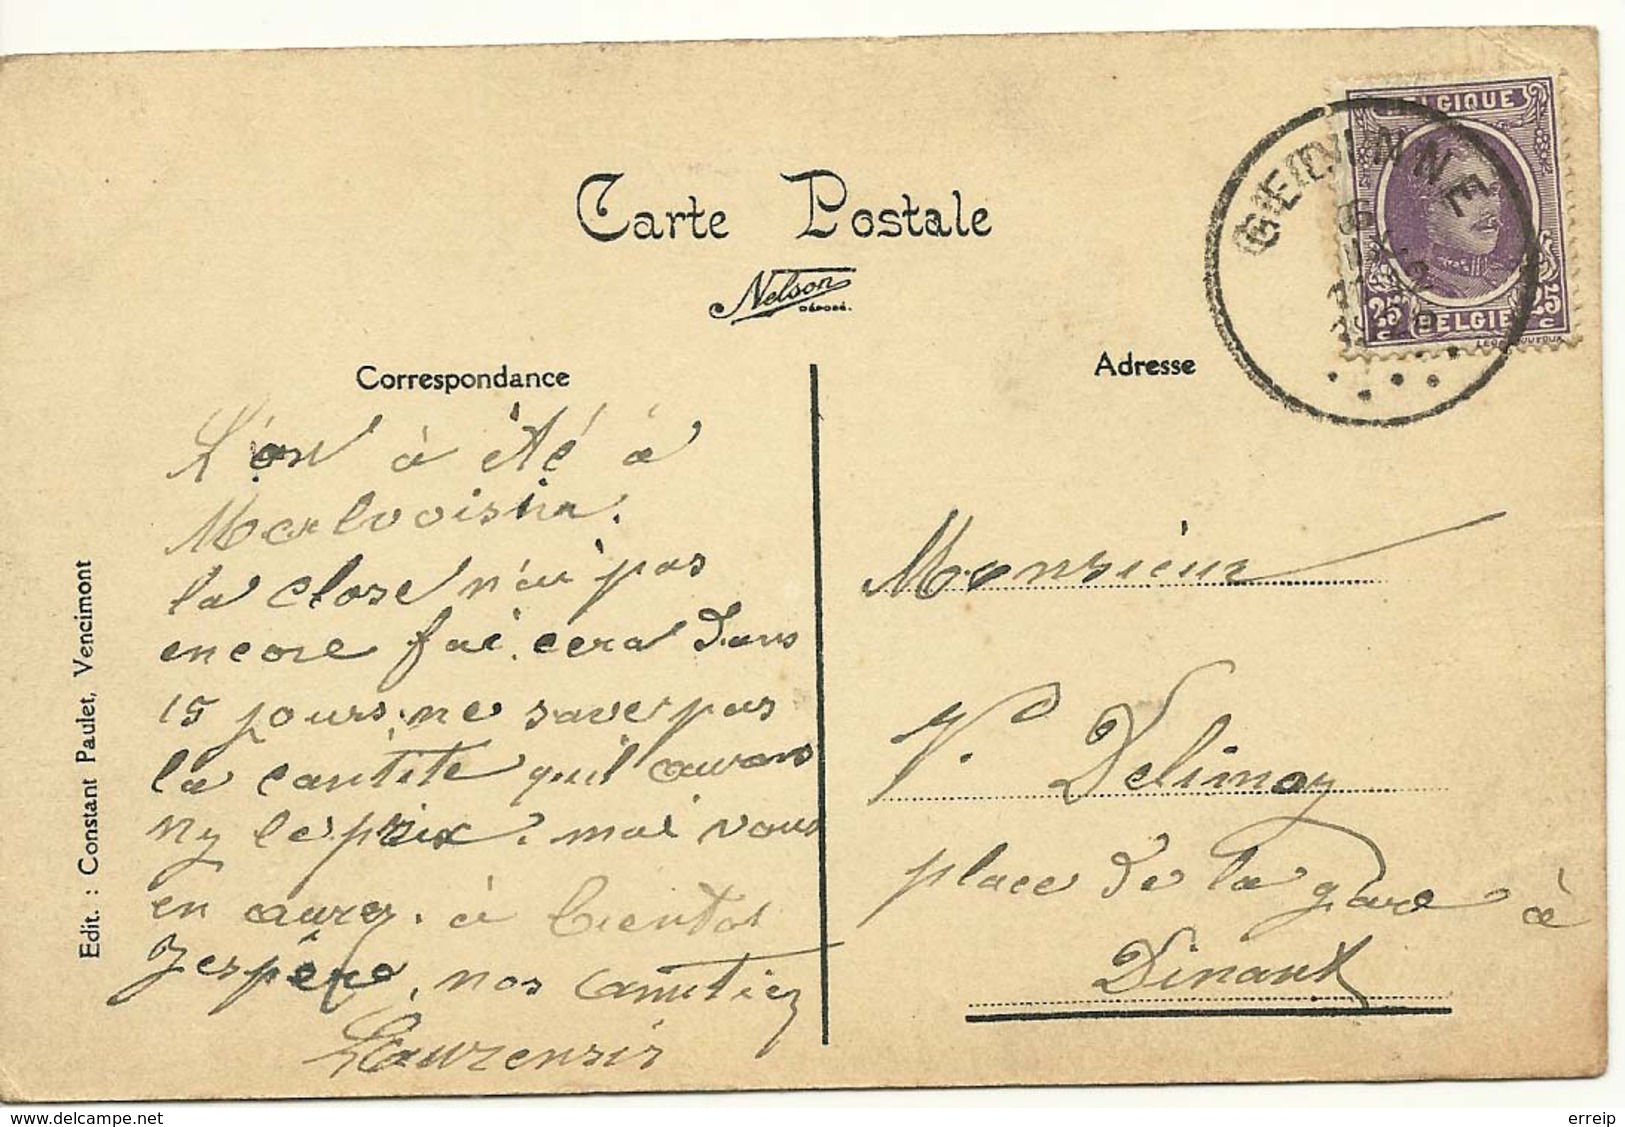 BELGIQUE
GEDINNE
25 C BELGIE 25 C
Carte Postale
Nelson
DÉPOSÉ.
Correspondance
Adresse
L'on à été à
Malvoisin.
la close n'ai pas
encore fai. cera dans
15 jours. ne saver pas
la cantité qu'il aurons
ny le prix. mai vous
en aurez. à bientot
Jespère, nos amitiez
Laurensis
Monsieur
V. Delimoy
place de la gare à
Dinant
Edit. : Constant Paulet, Vencimont
www.delcampe.net
erreip